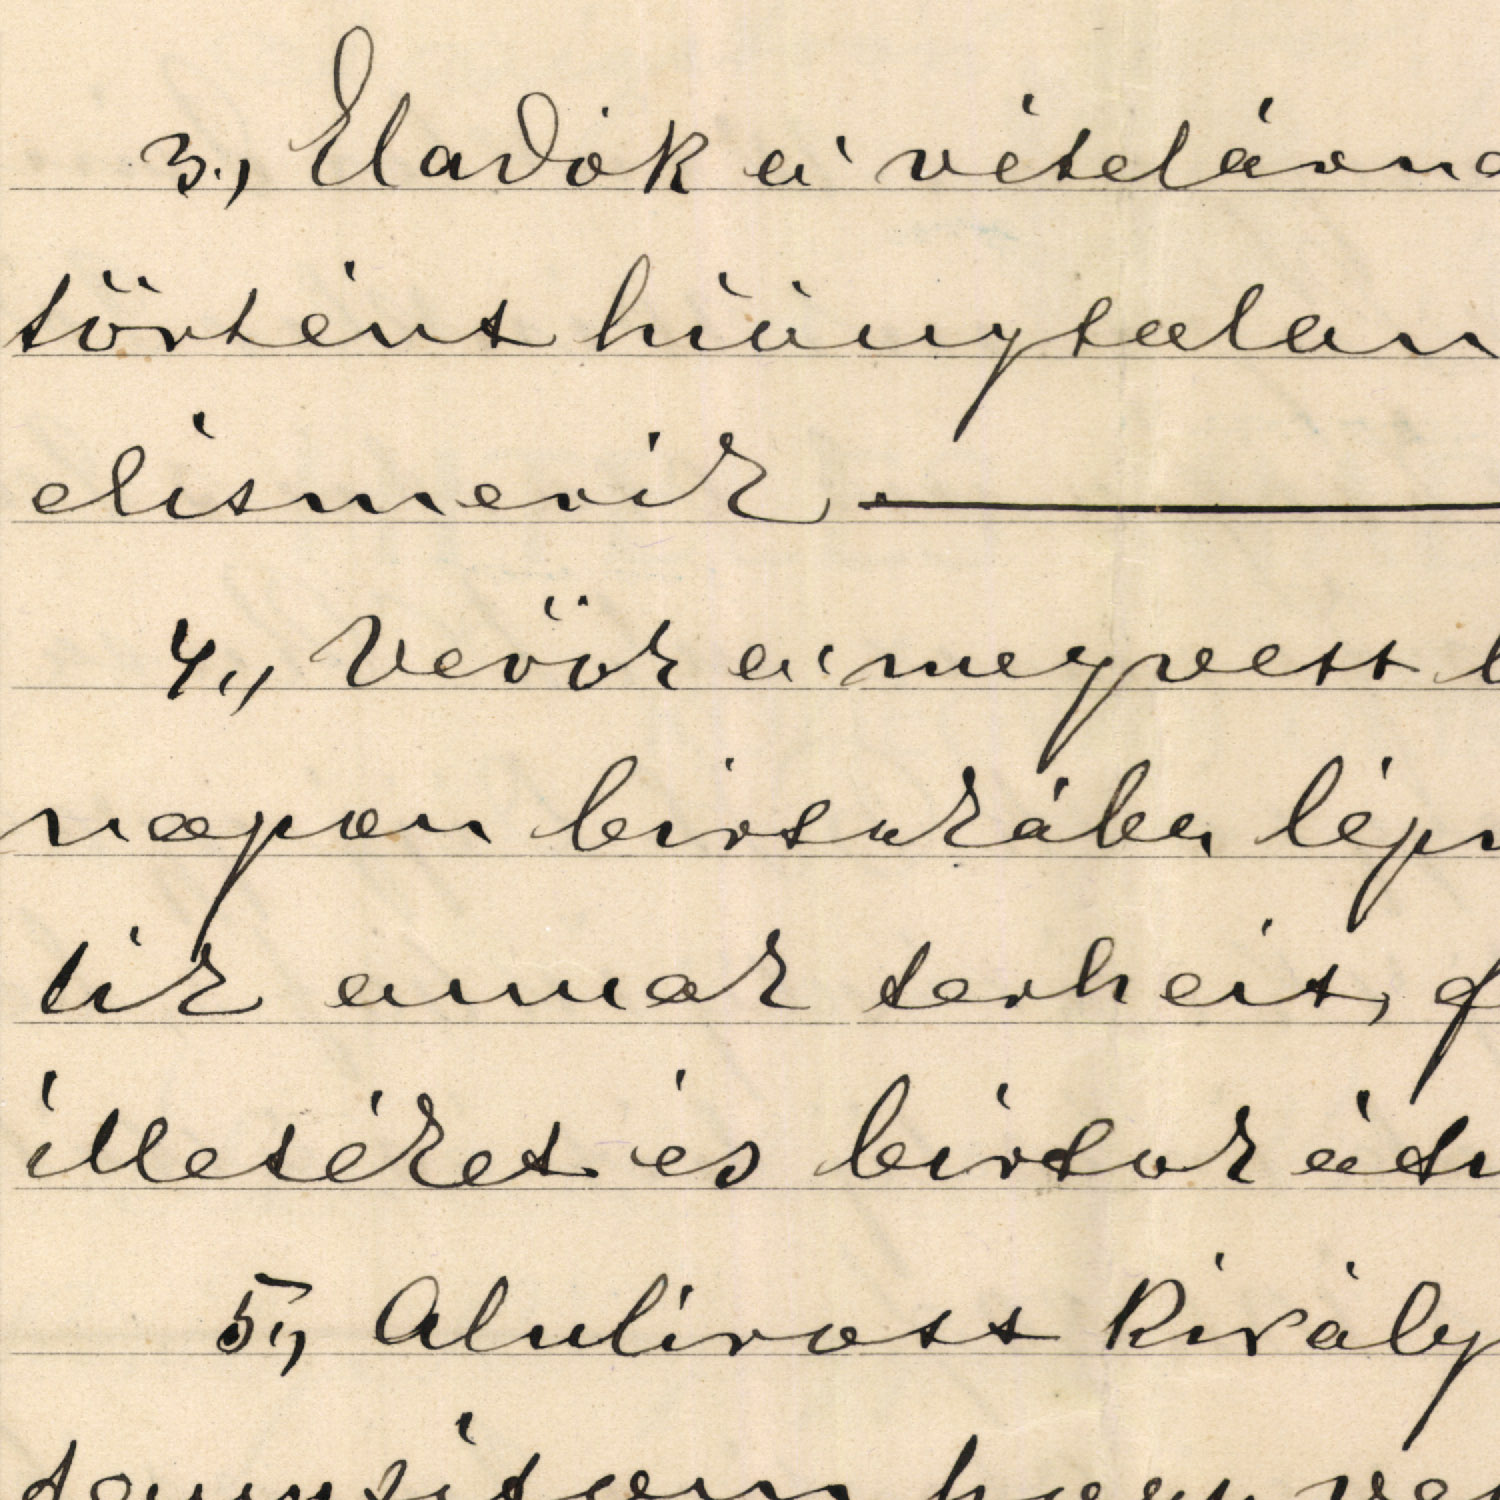 3., Eladók a' vételárna
történt hiánytalan
elismerik.
4., Vevők a' megvett
napon birtokába lépn
tik annak terheit,
illetéket és birtokátu
5., Alulirott Király
hogy